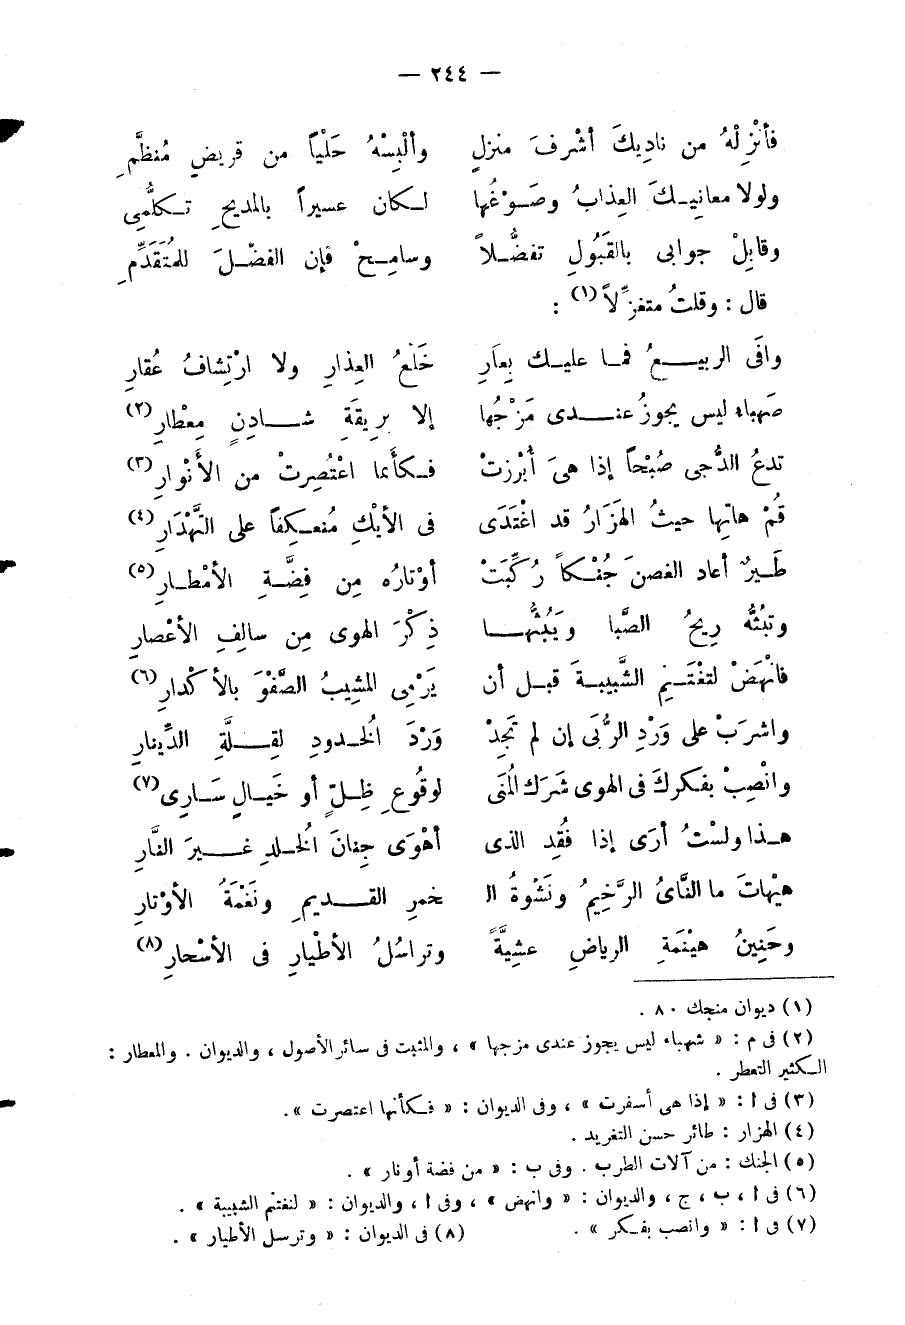 — ٢٤٤ —
فأنْزِلْهُ من نادِيكَ أشْرفَ منزلٍ وألْبِسْهُ حَلْياً من قريضٍ مُنظَّمِ
ولولا معانيـكَ العِذابُ وصَـوْغُها لـكان عسيراً بالمديحِ تـكلُّمِى
وقابِلْ جوابى بالقَبُولِ تفضُّـلاً وسامِـحْ فإن الفضْـلَ للمُتَقَدِّمِ
قال : وقلتُ متغزِّلاً (١) :
وافَى الربيـــعُ فمـا عليـك بِعارِ خَلْعُ العِذارِ ولا ارْتِشافُ عُقارِ
صَهباء ليس يجوزُ عنـــدى مَزْجُها إلا بريقةِ شـــادِنٍ مِعْطارِ (٢)
تدعُ الدُّجى صُبْحاً إذا هىَ أُبْرِزتْ فـكأنما اعْتُصِرتْ من الأَنْوارِ (٣)
قُمْ هاتِها حيثُ الهَزَارُ قد اغْتَدَى فى الأيْكِ مُنعـكِفاً على التَّهْدَارِ (٤)
طَـيرٌ أعاد الغصنَ جُنْـكاً رُكِّبَتْ أوْتارُه مِن فِضَّـةِ الأمْطـارِ (٥)
وتبُثُّه رِيحُ الصَّبا ويَبُثُّهـــا ذِكْرَ الهوى مِن سالِفِ الأعْصارِ
فانْهَضْ لتغْتَـنِمِ الشَّبيبـةَ قبـل أن يَرْمِى المَشِيبُ الصَّفْوَ بالأكْدارِ (٦)
واشربْ على وَرْدِ الرُّبَى إن لم تَجِدْ وَرْدَ الخُـدودِ لِقـــلَّةِ الدِّينارِ
وانْصِبْ بفـكرِكَ فى الهوى شَرَك المُنَى لوقُوعِ ظِـلٍّ أو خَيـالٍ سَـارِى (٧)
هـذا ولستُ أرَى إذا فُقِد الذى أهْوَى جِنانَ الخُـلدِ غـــيرَ النَّارِ
هيْهاتَ ما النَّاىُ الرَّخِيمُ ونَشْوةُ ال خمرِ القـــديمِ ونَغْمَةُ الأوْتارِ
وحَنِينُ هَيْنَمةِ الرياضِ عشِيَّةً وتراسُلُ الأطْيارِ فى الأسْحارِ (٨)
(١) ديوان منجك ٨٠ .
(٢) فى م : « شهباء ليس يجوز عندى مزجها » ، والمثبت فى سائر الأصول ، والديوان . والمعطار :
الـكثير التعطر .
(٣) فى ا : « إذا هى أسفرت » ، وفى الديوان : « فـكأنها اعتصرت » .
(٤) الهزار : طائر حسن التغريد .
(٥) الجنك : من آلات الطرب . وفى ب : « من فضة أونار » .
(٦) فى ا ، ب ، ج ، والديوان : « وانهض » ، وفى ا ، والديوان : « لنغتنم الشبيبة » .
(٧) فى ا : « وانصب بفـكر » . (٨) فى الديوان : « وترسل الأطيار » .